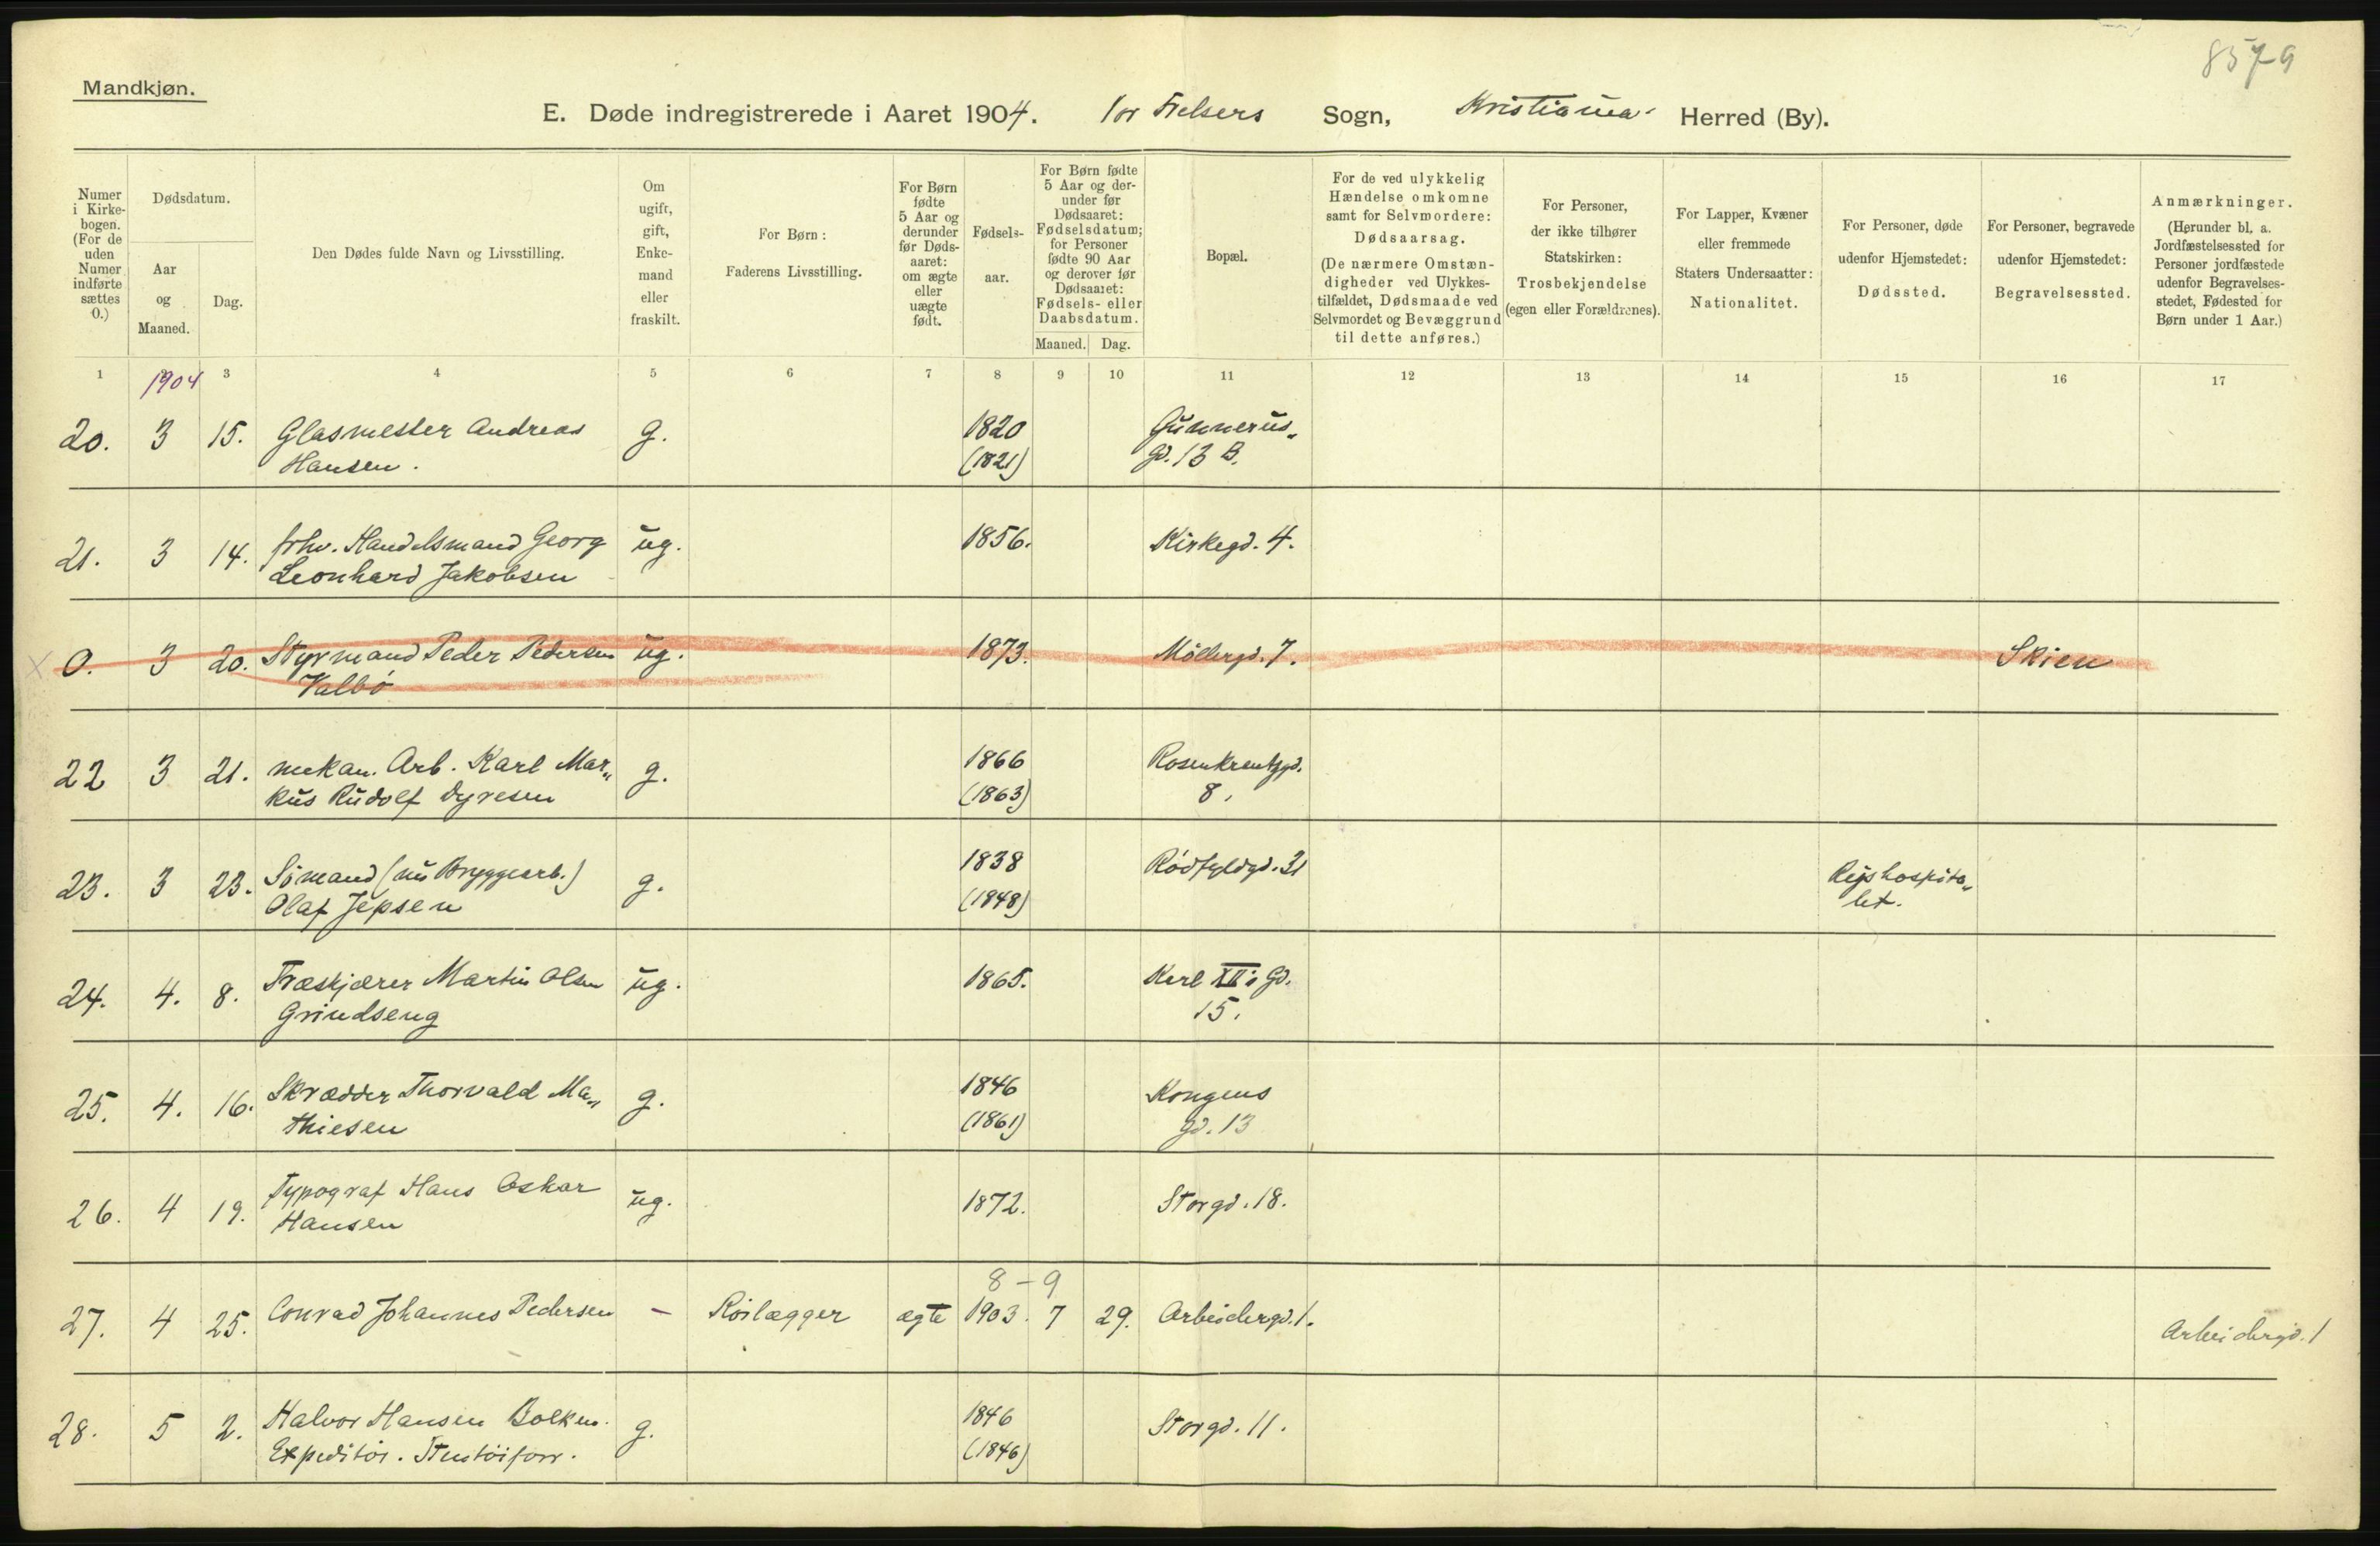 8579
Mandkjøn.
E. Døde indregistrerede i Aaret 1904. Vor Frelsers Sogn, Kristiania Herred (By).
Numer
i Kirke-
bogen.
(For de
uden
Numer
indførte
sættes
0.)
Dødsdatum.
Aar
og
Maaned.
Dag.
Den Dødes fulde Navn og Livsstilling.
Om
ugift,
gift,
Enke-
mand
eller
fraskilt.
For Børn:
Faderens Livsstilling.
For Børn
fødte
5 Aar og
derunder
før Døds-
aaret:
om ægte
eller
uægte
født.
Fødsels-
aar.
For Børn fødte
5 Aar og der-
under før
Dødsaaret:
Fødselsdatum;
for Personer
fødte 90 Aar
og derover før
Dødsaaret:
Fødsels- eller
Daabsdatum.
Maaned. Dag.
Bopæl.
For de ved ulykkelig
Hændelse omkomne
samt for Selvmordere:
Dødsaarsag.
(De nærmere Omstæn-
digheder ved Ulykkes-
tilfældet, Dødsmaade ved
Selvmordet og Bevæggrund
til dette anføres.)
For Personer,
der ikke tilhører
Statskirken:
Trosbekjendelse
(egen eller Forældrenes).
For Lapper, Kvæner
eller fremmede
Staters Undersaatter:
Nationalitet.
For Personer, døde
udenfor Hjemstedet:
Dødssted.
For Personer, begravede
udenfor Hjemstedet:
Begravelsessted.
Anmærkninger.
(Herunder bl. a.
Jordfæstelsessted for
Personer jordfæstede
udenfor Begravelses-
stedet, Fødested for
Børn under 1 Aar.)
1 3 4 5 6 7 8 9 10 11 12 13 14 15 16 17
1904
20. 3 15. Glasmester Andreas g. 1820 Gunnerus„
Hansen. (1821) gd. 13 B.
21. 3 14. frhv. Handelsmand Georg ug. 1856. Kirkegd. 4.
Leonhard Jakobsen
X 0. 3 20. Styrmand Peder Pedersen ug. 1873. Møllergd. 7. Skien
Valbø
22 3 21. mekan. Arb. Karl Mar„ g. 1866 Rosenkrentzgd.
kus Rudolf Dyresen (1863) 8.
23. 3 23. Sømand (nu Bryggearb.) g. 1838 Rødfyldgd. 31 Rigshospita„
Olaf Jepsen (1848) let.
24. 4. 8. Træskjærer Martin Olsen ug. 1865. Karl XII's Gd.
Grindseng 15.
25. 4. 16. Skrædder Thorvald Ma„ g. 1846 Kongens
thiesen (1861) gd. 13
26. 4 19. Typograf Hans Oskar ug. 1872. Storgd. 18.
Hansen
8-9
27. 4 25. Conrad Johannes Pedersen - Rørlægger ægte 1903. 7 29. Arbeidergd. 1. Arbeidergd. 1
28. 5 2. Halvor Hansen Bolken. g. 1846 Storgd. 11.
Expeditør. Stentøiforr. (1846)